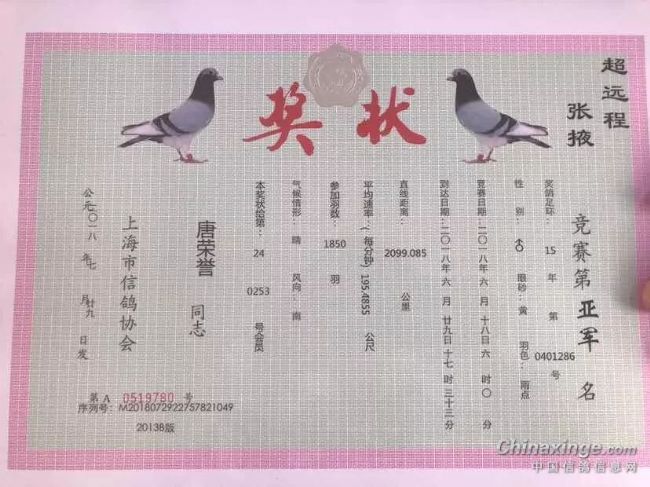 超远程
张掖
奖状
竞赛第亚军名
奖鸽足环：15年第0401286号
性别：♂ 眼砂：黄 羽色：雨点
竞赛日期：二〇一八年六月十八日六时〇分
到达日期：二〇一八年六月廿九日十七时三十三分
直线距离：2099.085公里
平均速率（每分钟）195.4855公尺
参加羽数：1850羽
气候情形：晴 风向：南
本奖状给第：24 0253号会员
唐荣誉同志
上海市信鸽协会
公元二〇一八年七月廿九日发
第A 0519780 号
序列号：M2018072922757821049
2013B版
Chinaxinge.com
中国信鸽信息网